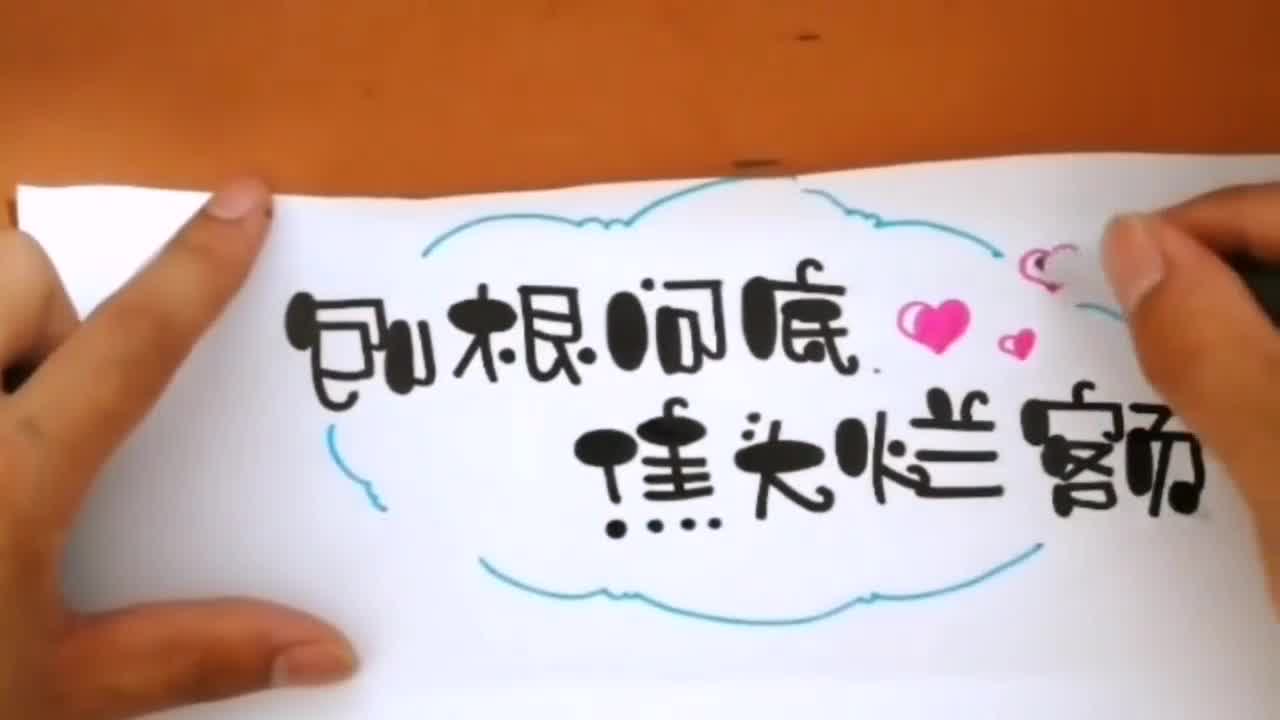 刨根问底
焦头烂额